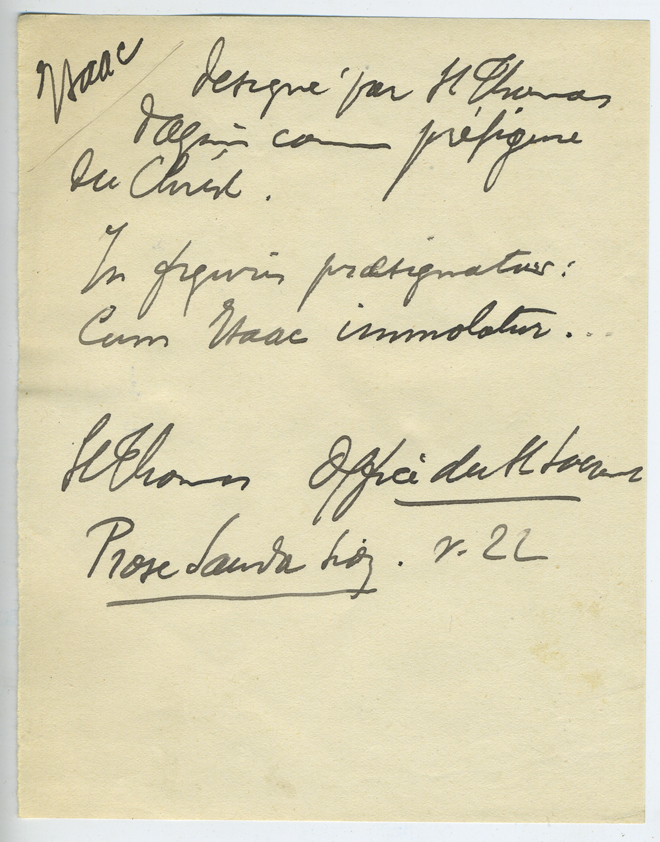 Isaac
désigné par St Thomas
d'Aquin comme préfigure
du Christ.
In figuris præsignatur:
Cum Isaac immolatur...
St Thomas Office du St Sacrement
Prose Lauda Sion. v. 22